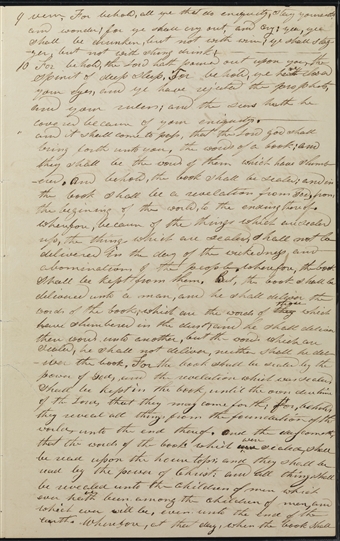 9 very. For behold, all ye that do iniquity, stay yourselves
and wonder; for ye shall cry out, and cry; yea, ye
shall be drunken, but not with wine; ye shall stag-
ger, but not with strong drink;
10 For behold, the Lord hath poured out upon you, the
spirit of deep sleep. For behold, ye have closed
your eyes, and ye have rejected the prophets,
and your rulers; and the seers hath he
covered because of your iniquity.
and it shall come to pass, that the Lord God shall
bring forth unto you, the words of a book; and
they shall be the words of them which have slumber-
ered. And behold, the book shall be sealed; and in
the book shall be a revelation from God, from
the beginning of the world, to the ending thereof.
Wherefore, because of the things which are sealed
up, the things which are sealed, shall not be
delivered in the day of the wickedness, and
abominations of the people. Wherefore, the book
shall be kept from them. But, the book shall be
delivered unto a man, and he shall deliver the
words of the book, which are the words of those they which
have slumbered in the dust; and he shall deliver
these words unto another, but the words which are
sealed, he shall not deliver, neither shall he deli-
ver the book. For the book shall be sealed by the
power of God, and the revelation which was sealed
shall be kept in the book, until the own due time
of the Lord, that they may come forth; For, behold,
they reveal all things from the foundation of the
world, unto the end thereof. And the day cometh,
that the words of the book which were are sealed, shall
be read upon the house tops; and they shall be
read by the power of Christ; and all things shall
be revealed unto the children of men which
ever hath been among the children of men, and
which ever will be, even unto the end of the
earth. Wherefore, at that day, when the book shall